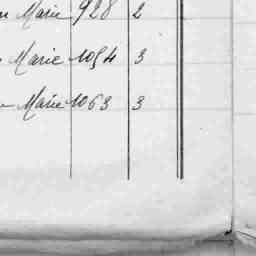 Marie 928 2
Marie 1054 3
Marie 1063 3